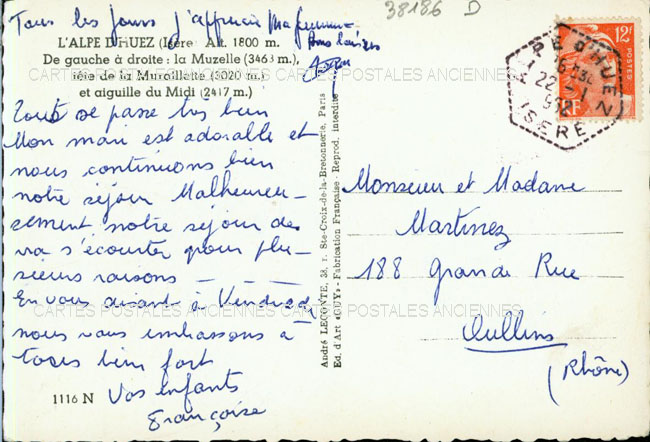 38186 D
Tous les jours j'apprécie Ma
Bons baisers
L'ALPE D'HUEZ (Isère) Alt. 1800 m.
De gauche à droite : la Muzelle (3463 m.),
tête de la Muraillette (3020 m.)
et aiguille du Midi (2417 m.)
CARTES POSTALES ANCIENNES CARTES POSTALES ANCIENNES
Tout se passe très bien
Mon mari est adorable et
nous continuons bien
notre séjour Malheureu-
sement notre séjour de
va s'écourter pour plu-
sieurs raisons
En vous disant à Vendredi
nous vous embrassons à
tous bien fort
Vos enfants
Françoise
1116 N
CARTES POSTALES ANCIENNES CARTES POSTALES ANCIENNES
André LECONTE, 38, r. Ste-Croix-de-la-Bretonnerie, Paris
Ed. d'Art «GUY» - Fabrication Française. Reprod. interdite
12F
POSTES
RF
ALPE D'HUEZ
16H30
22-1
952
ISERE
Monsieur et Madame
Martinez
188 Grande Rue
Oullins
(Rhône)